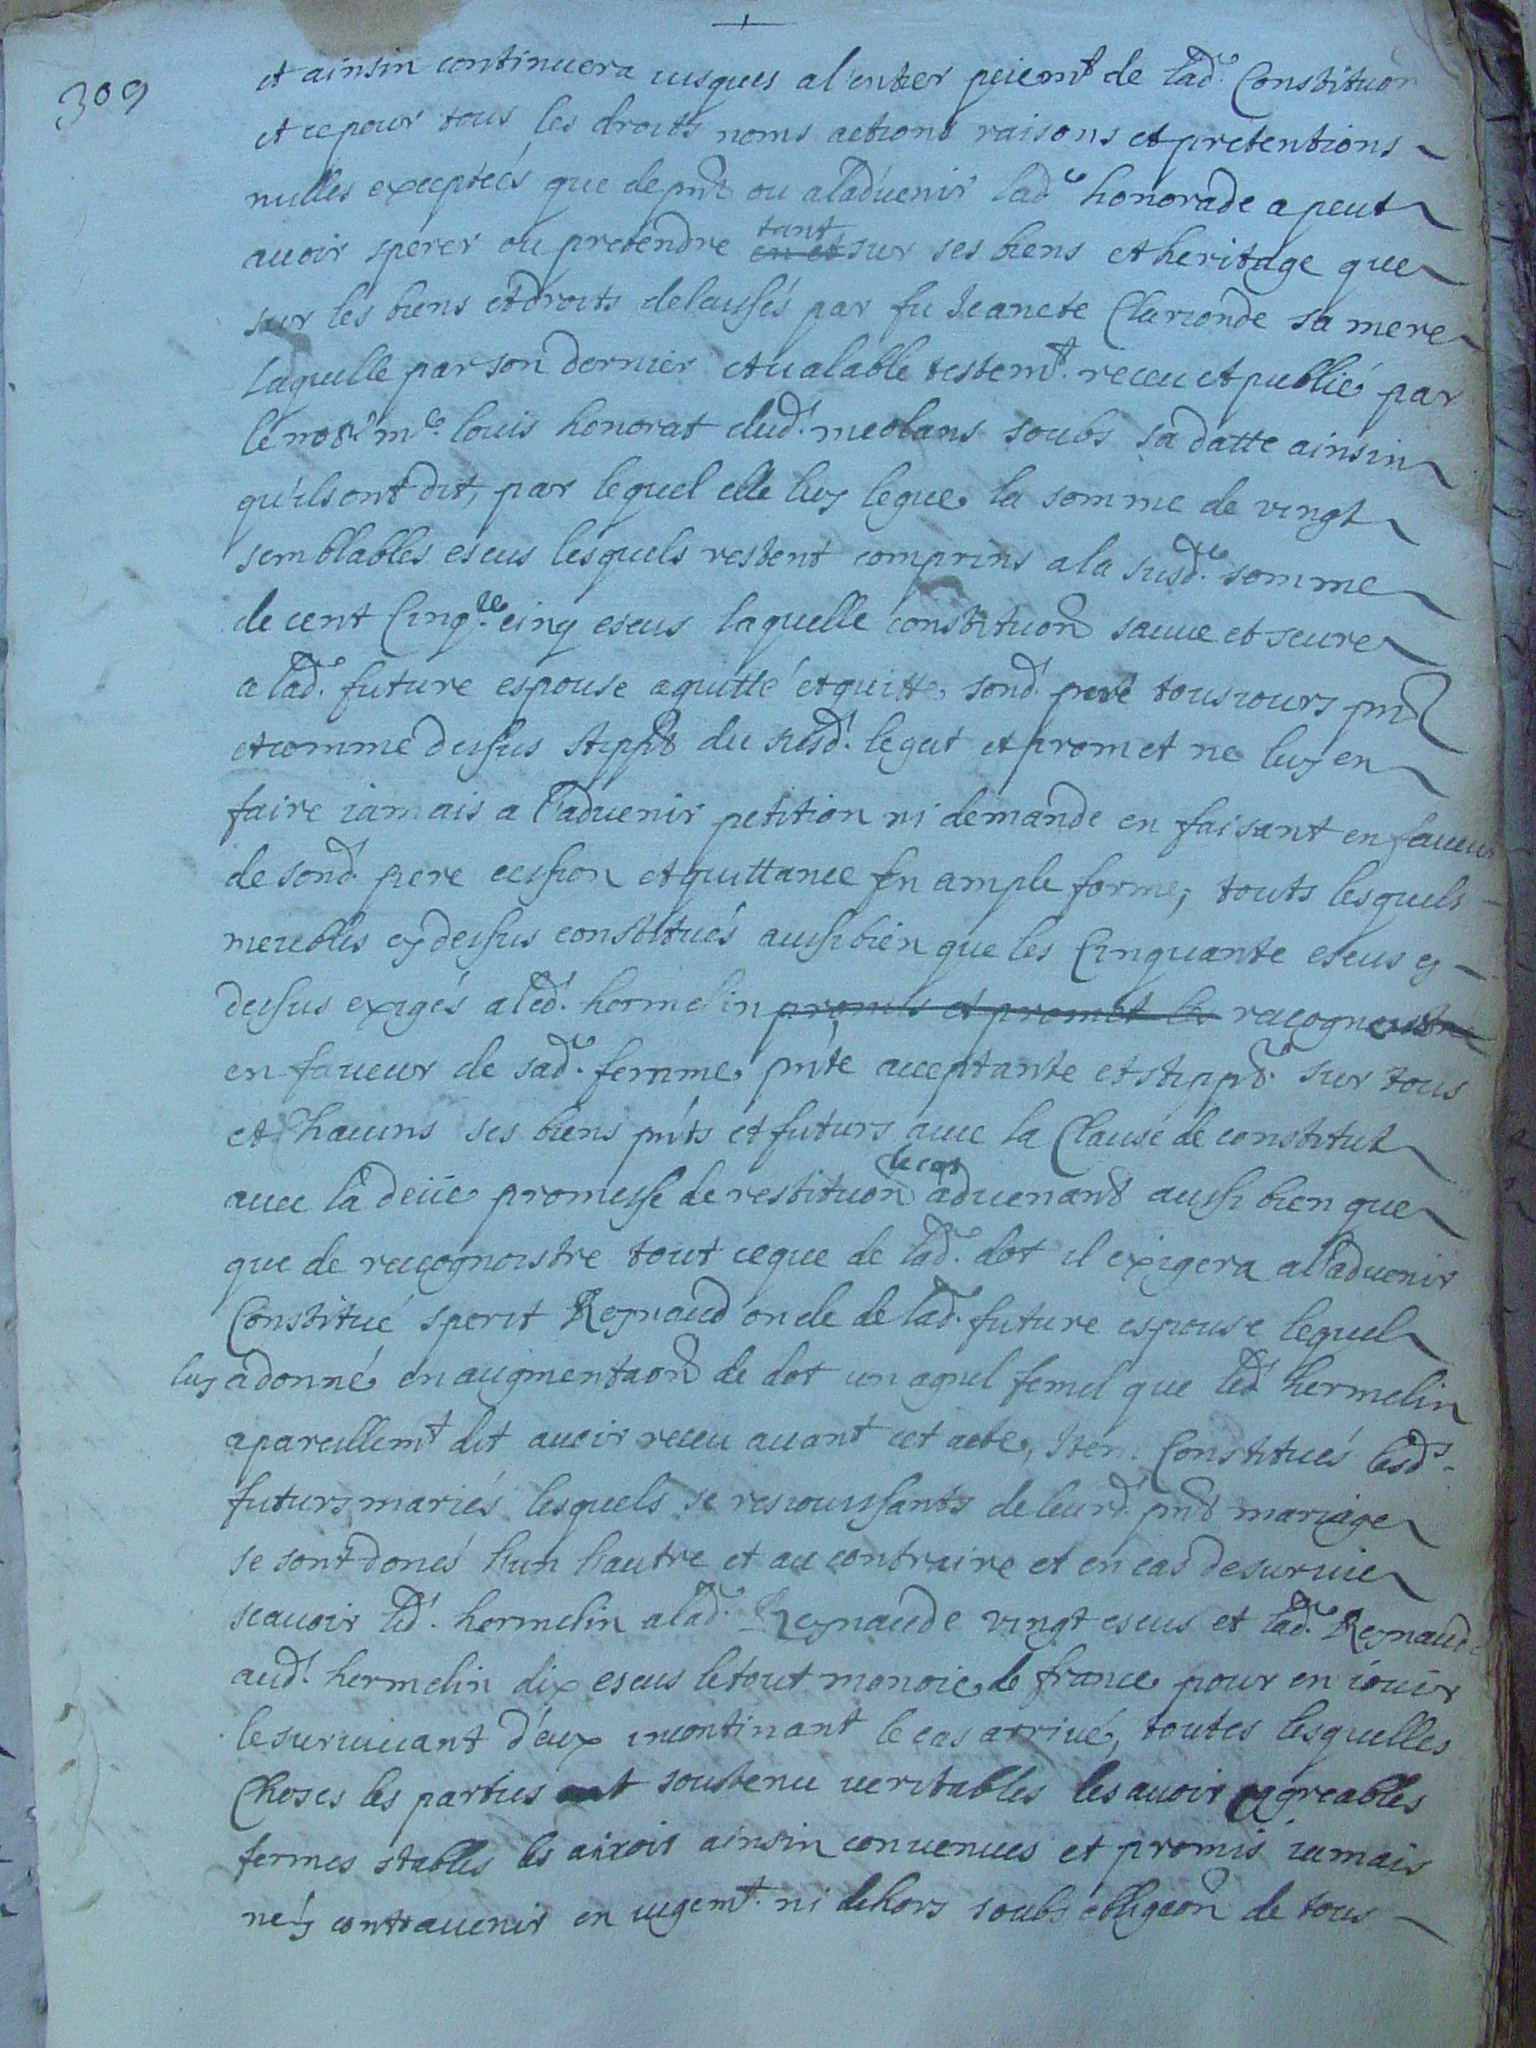 309
et ainsin continuera iusques a l'entier peiemt de lade Constituon
et ce pour tous les droits noms actions raisons et pretentions
nulles exceptées que de pnt ou a l'aduenir lade honorade a peut
auoir sperer ou pretendre en et tant sur ses biens et heritage que
sur les biens et droits delaissés par fu Jeanete Clarionde sa mere
laquelle par son dernier et ualable testemt. receu et publié par
le notre me. louis honorat dud. meolans soubs sa datte ainsin
qu'ils ont dit, par lequel elle luy legue la somme de vingt
semblables escus lesquels restent comprins a la susde. somme
de cent Cinqte. cinq escus laquelle constituon sauue et seure
a lade. future espouse a quitté et quitte sond. pere tousiours pnt
et comme dessus stippt du susd. legat et promet ne luy en
faire iamais a l'aduenir petition ni demande en faisant en faueur
de sond. pere cession et quittance en ample forme, touts lesquels
meubles cy dessus constitués aussi bien que les Cinquante escus cy
dessus exigés a led. hermelin promis et promet les recognoistre
en faueur de sade. femme pnte acceptante et stippt. sur tous
et Chacuns ses biens pnts et futurs auec la Clause de constitut
auec la deüe promesse de restituon le cas aduenant aussi bien que
que de recognoistre tout ce que de lade. dot il exigera a l'aduenir
Constitué sperit Reynaud oncle de lade. future espouse lequel
luy a donné en augmentaon de dot un agnel femel que led hermelin
a pareillemt dit auoir receu auant cet acte, Item Constitués lesds.
futurs mariés lesquels se resiouissants de leurd. pnt mariage
se sont donés l'un l'autre et au contraire et en cas de suruie
scauoir led. hermelin a lade. Reynaude vingt escus et lade. Reynaude
aud. hermelin dix escus le tout monoie de france pour en iouir
le suruiuant d'eux incontinant le cas arriué, toutes lesquelles
Choses les parties ont soustenu ueritables les auoir agreables
fermes stables les auoir ainsin conuenues et promis iamais
n'ey contrauenir en iugemt. ni dehors soubs obligaon de tous